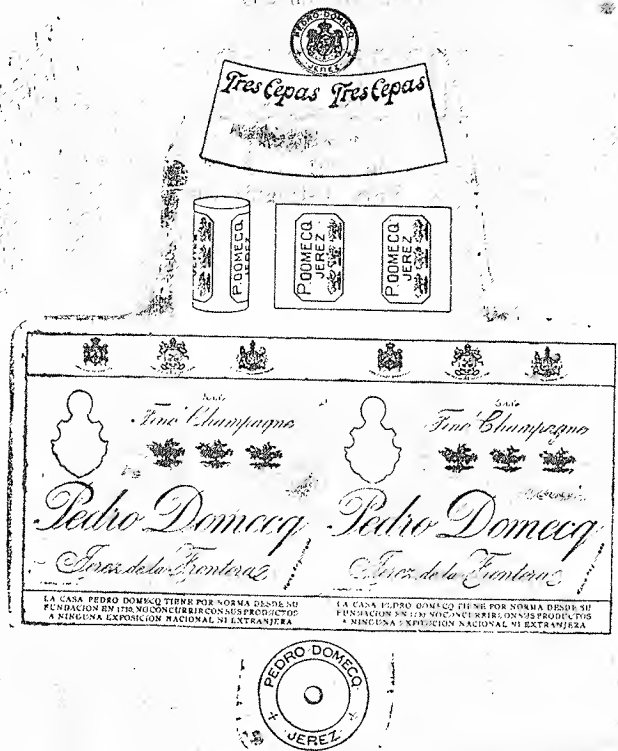 PEDRO DOMECQ
JEREZ
Tres Cepas Tres Cepas
P. DOMECQ
JEREZ
P. DOMECQ
JEREZ
P. DOMECQ
JEREZ
Fine Champagne
Pedro Domecq
Jerez de la Frontera
LA CASA PEDRO DOMECQ TIENE POR NORMA DESDE SU
FUNDACION EN 1730, NO CONCURRIR CON SUS PRODUCTOS
A NINGUNA EXPOSICION NACIONAL NI EXTRANJERA
Fine Champagne
Pedro Domecq
Jerez de la Frontera
LA CASA PEDRO DOMECQ TIENE POR NORMA DESDE SU
FUNDACION EN 1730, NO CONCURRIR CON SUS PRODUCTOS
A NINGUNA EXPOSICION NACIONAL NI EXTRANJERA
PEDRO DOMECQ
JEREZ